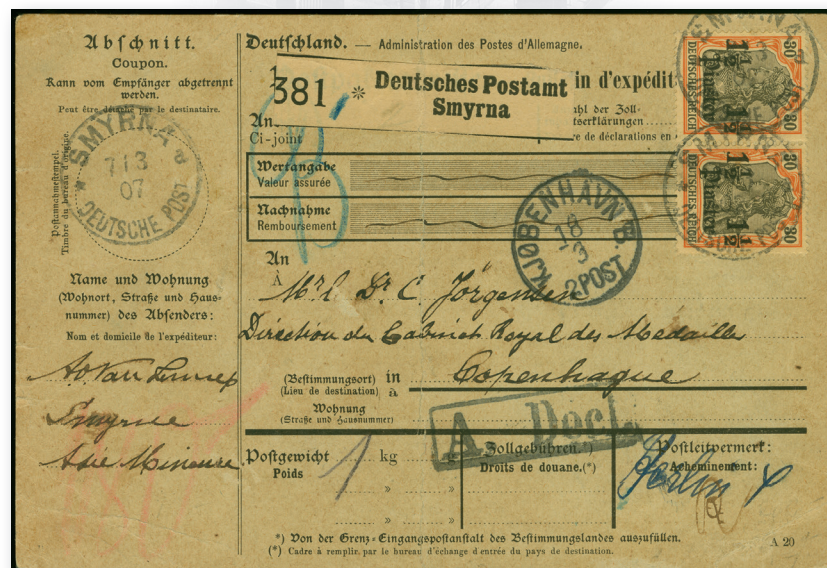 Abschnitt.
Coupon.
Kann vom Empfänger abgetrennt
werden.
Peut être détaché par le destinataire.
Postannahmestempel.
Timbre du bureau d'origine.
* SMYRNA a
7 1 3
07
DEUTSCHE POST
Name und Wohnung
(Wohnort, Straße und Haus-
nummer) des Absenders:
Nom et domicile de l'expéditeur:
Smyrne
Asie Mineure
Deutschland. — Administration des Postes d'Allemagne.
381 * Deutsches Postamt
Smyrna
in d'expédit
An
Ci-joint
hl der Zoll-
tserklärungen
re de déclarations en
Wertangabe
Valeur assurée
Nachnahme
Remboursement
SMYRNA
1½ 1½
Piaster
30 30
DEUTSCHES REICH
1½ 1½
Piaster
30 30
DEUTSCHES REICH
KJØBENHAVN B.
18
3
2.POST
An
À
Mr l. Dr C. Jörgensen
Direction du Cabinet Royal des Medailles
(Bestimmungsort) in
(Lieu de destination) à
Copenhague
Wohnung
(Straße und Hausnummer)
A. Decl.
Postgewicht
Poids
1 kg
» »
» »
Zollgebühren.*)
Droits de douane.(*)
Postleitvermerk:
Acheminement:
Berlin
*) Von der Grenz-Eingangspostanstalt des Bestimmungslandes auszufüllen.
(*) Cadre à remplir par le bureau d'échange d'entrée du pays de destination.
A 20